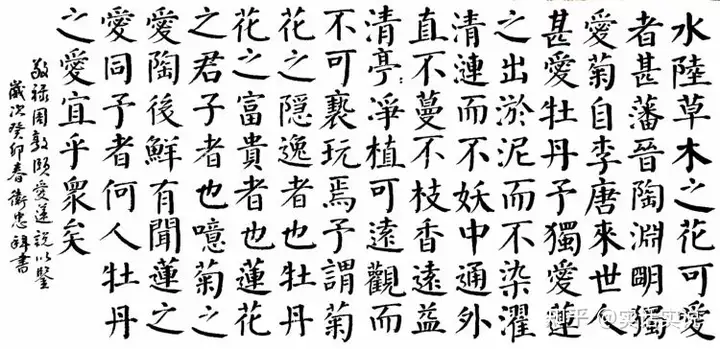 水陸草木之花可愛
者甚藩晉陶淵明獨
愛菊自李唐來世人
甚愛牡丹予獨愛蓮
之出淤泥而不染濯
清漣而不妖中通外
直不蔓不枝香遠益
清亭:淨植可遠觀而
不可褻玩焉予謂菊
花之隱逸者也牡丹
花之富貴者也蓮花
之君子者也噫菊之
愛陶後鮮有聞蓮之
愛同予者何人牡丹
之愛宜乎眾矣
敬禄周敦頤愛蓮說以鑒
歲次癸卯春衛忠書
知乎 @实话实说